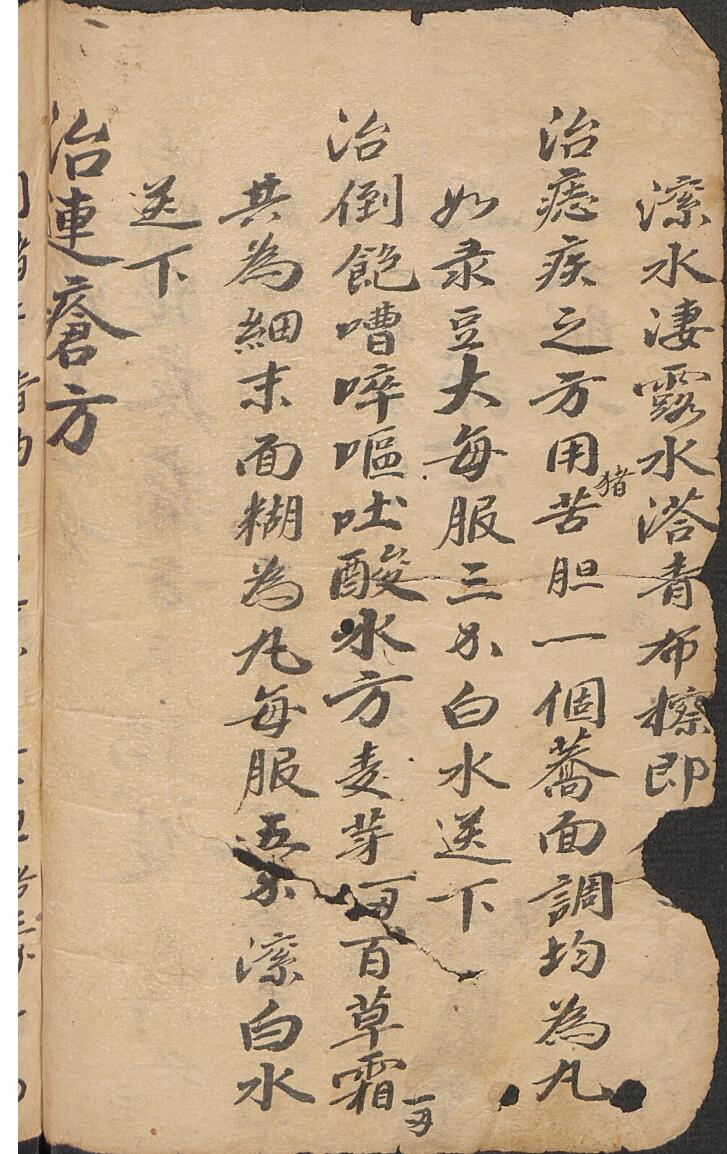 滚水凄露水溚青布擦即
治痣疾之方用猪苦胆一個蕎面調均為九
如录豆大每服三分白水送下
治倒飽嘈啐嘔吐酸水方麦芽一両百草霜一両
共為細末面糊為九每服五分滚白水
送下
治連瘡方